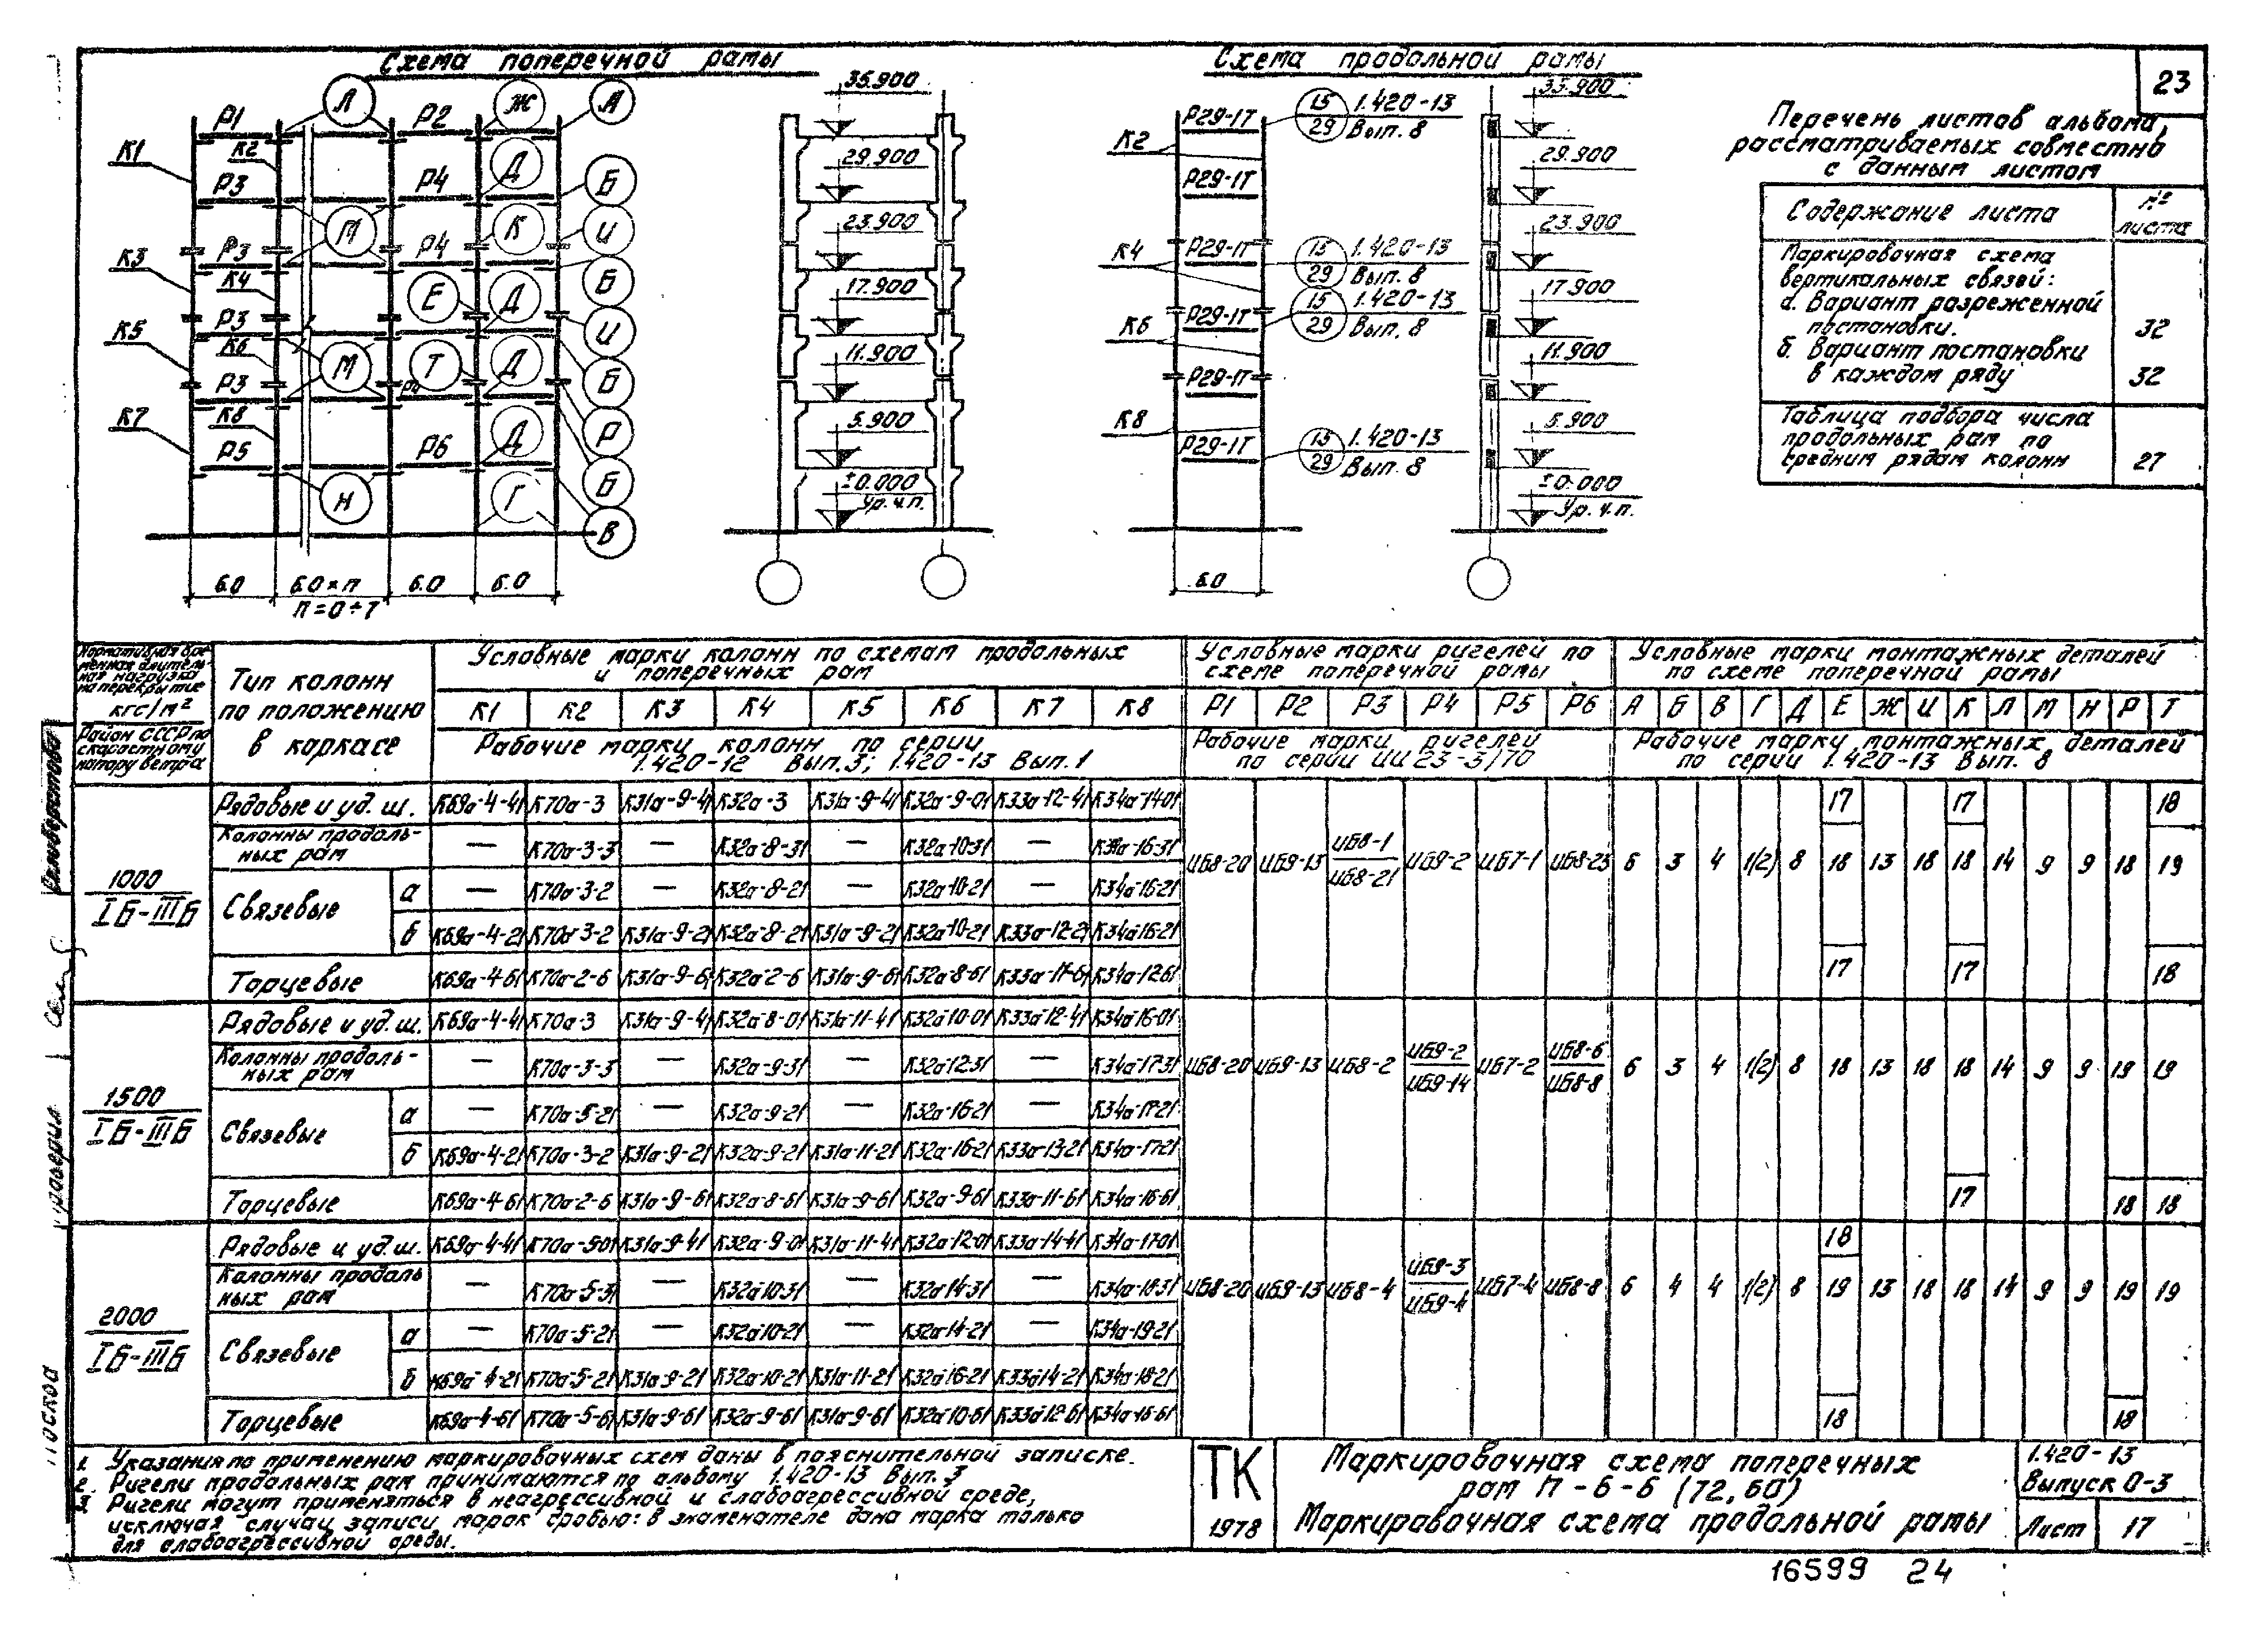 23
Схема поперечной рамы
Схема продольной рамы
Л
Ж
А
Р1
Р2
К1
К2
Д
Р3
Р4
Б
М
К
И
Р3
Р4
К3
К4
Е
Д
Б
И
Р3
К5
К6
М
Т
Д
Б
Р3
Р4
К7
К8
Д
Р
Р5
Р6
Б
Н
Г
В
6.0
6.0×п
6.0
6.0
п=0÷7
35.900
29.900
23.900
17.900
11.900
5.900
±0.000
Ур.ч.п.
К2
К4
К6
К8
Р29-1Т
Р29-1Т
Р29-1Т
Р29-1Т
Р29-1Т
Р29-1Т
15 1.420-13
29 Вып. 8
15 1.420-13
29 Вып. 8
15 1.420-13
29 Вып. 8
15 1.420-13
29 Вып. 8
6.0
35.900
29.900
23.900
17.900
11.900
5.900
±0.000
Ур.ч.п.
Перечень листов альбома,
рассматриваемых совместно
с данным листом
Содержание листа
№
листа
Маркировочная схема
вертикальных связей:
а. Вариант разреженной
постановки. 32
б. Вариант постановки
в каждом ряду 32
Таблица подбора числа
продольных рам по
средним рядам колонн 27
Нормативная вре-
менная длитель-
ная нагрузка
на перекрытие
кгс/м²
Район СССР по
скоростному
напору ветра
Тип колонн
по положению
в каркасе
Условные марки колонн по схемам продольных
и поперечных рам
К1 К2 К3 К4 К5 К6 К7 К8
Рабочие марки колонн по серии
1.420-12 Вып.3; 1.420-13 Вып.1
Условные марки ригелей по
схеме поперечной рамы
Р1 Р2 Р3 Р4 Р5 Р6
Рабочие марки ригелей
по серии ИИ 23-3/70
Условные марки монтажных деталей
по схеме поперечной рамы
А Б В Г Д Е Ж И К Л М Н Р Т
Рабочие марки монтажных деталей
по серии 1.420-13 Вып. 8
1000
IБ-IIIБ
Рядовые и уд. ш. К69а-4-41 К70а-3 К31а-9-41 К32а-3 К31а-9-41 К32а-9-01 К33а-12-41 К34а-14-01 17 17 18
Колонны продоль-
ных рам — К70а-3-3 — К32а-8-31 — К32а-10-31 — К34а-16-31
ИБ8-20 ИБ9-13 ИБ8-1/ИБ8-21 ИБ9-2 ИБ7-1 ИБ8-23 6 3 4 1(2) 8 18 13 18 18 14 9 9 18 19
Связевые а — К70а-3-2 — К32а-8-21 — К32а-10-21 — К34а-16-21
б К69а-4-21 К70а-3-2 К31а-9-21 К32а-8-21 К31а-9-21 К32а-10-21 К33а-12-21 К34а-16-21
Торцевые К69а-4-61 К70а-2-6 К31а-9-61 К32а-2-6 К31а-9-61 К32а-8-61 К33а-11-61 К34а-12-61 17 17 18
1500
IБ-IIIБ
Рядовые и уд. ш. К69а-4-41 К70а-3 К31а-9-41 К32а-8-01 К31а-11-41 К32а-10-01 К33а-12-41 К34а-16-01
Колонны продоль-
ных рам — К70а-3-3 — К32а-9-31 — К32а-12-31 — К34а-17-31
ИБ8-20 ИБ9-13 ИБ8-2 ИБ9-2/ИБ9-14 ИБ7-2 ИБ8-6/ИБ8-8 6 3 4 1(2) 8 18 13 18 18 14 9 9 19 19
Связевые а — К70а-5-21 — К32а-9-21 — К32а-16-21 — К34а-17-21
б К69а-4-21 К70а-3-2 К31а-9-21 К32а-9-21 К31а-11-21 К32а-16-21 К33а-13-21 К34а-17-21
Торцевые К69а-4-61 К70а-2-6 К31а-9-61 К32а-8-61 К31а-9-61 К32а-9-61 К33а-11-61 К34а-16-61 17 18 18
2000
IБ-IIIБ
Рядовые и уд. ш. К69а-4-41 К70а-5-01 К31а-9-41 К32а-9-01 К31а-11-41 К32а-12-01 К33а-14-41 К34а-17-01 18
Колонны продоль
ных рам — К70а-5-31 — К32а-10-31 — К32а-14-31 — К34а-18-31
ИБ8-20 ИБ9-13 ИБ8-4 ИБ9-3/ИБ9-4 ИБ7-4 ИБ8-8 6 4 4 1(2) 8 19 13 18 18 14 9 9 19 19
Связевые а — К70а-5-21 — К32а-10-21 — К32а-14-21 — К34а-19-21
б К69а-4-21 К70а-5-21 К31а-9-21 К32а-10-21 К31а-11-21 К32а-16-21 К33а-14-21 К34а-18-21
Торцевые К69а-4-61 К70а-5-61 К31а-9-61 К32а-9-61 К31а-9-61 К32а-10-61 К33а-12-61 К34а-16-61 18 18
1. Указания по применению маркировочных схем даны в пояснительной записке.
2. Ригели продольных рам принимаются по альбому 1.420-13 Вып. 3
3. Ригели могут применяться в неагрессивной и слабоагрессивной среде,
исключая случаи записи марок дробью: в знаменателе дана марка только
для слабоагрессивной среды.
ТК
1978
Маркировочная схема поперечных
рам П-6-6 (72,60)
Маркировочная схема продольной рамы
1.420-13
Выпуск 0-3
Лист 17
16599 24